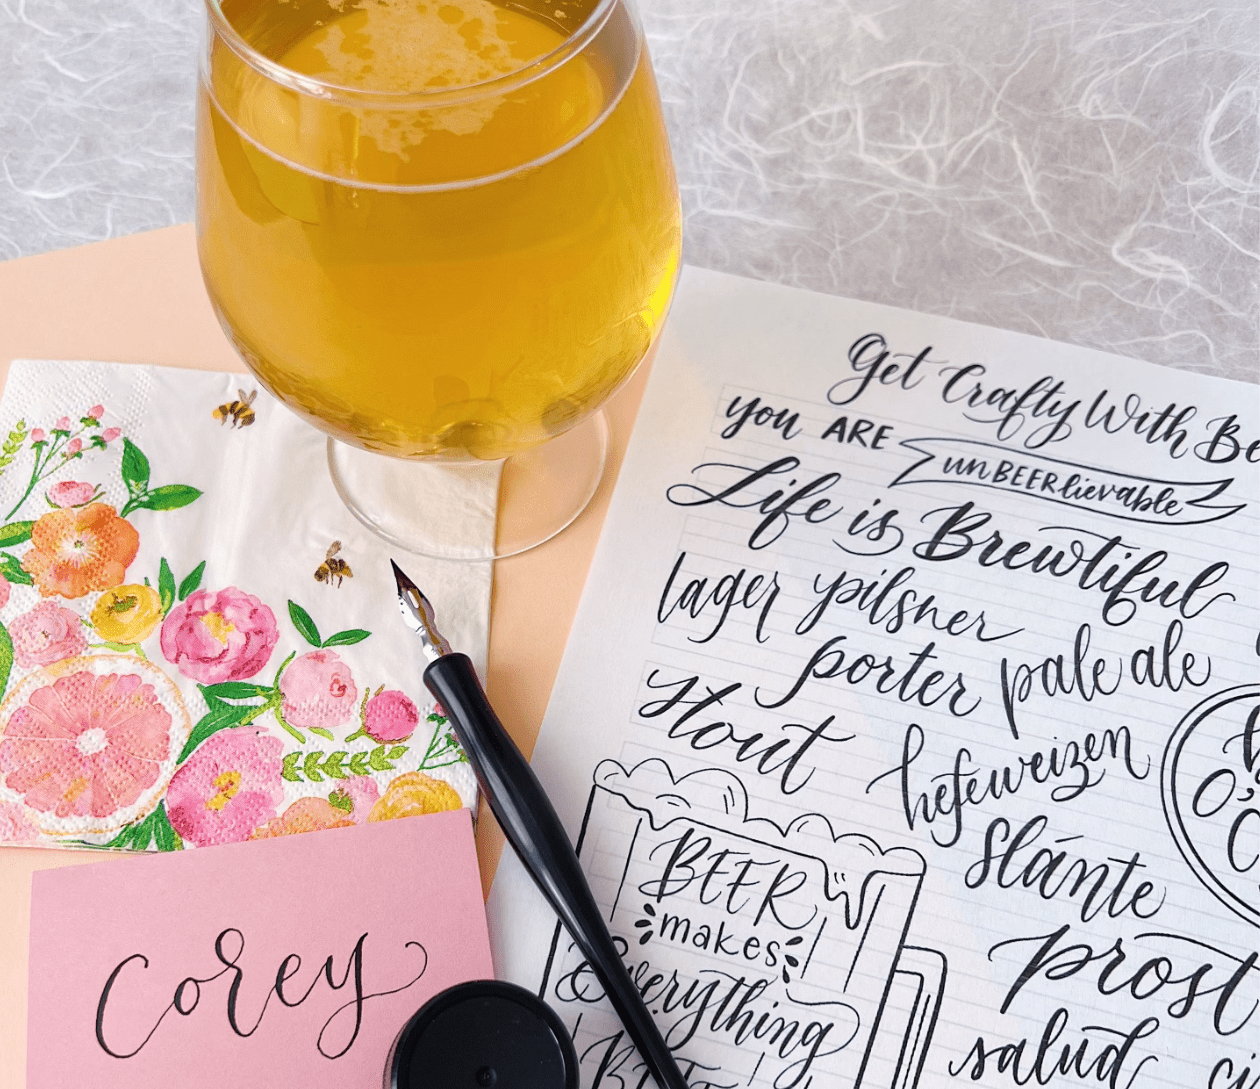 Get Crafty With
you ARE unBEERlievable
Life is Brewtiful
lager pilsner
porter pale ale
stout
hefeweizen
Slánte
prost
salud
BEER
makes
Everything
Corey